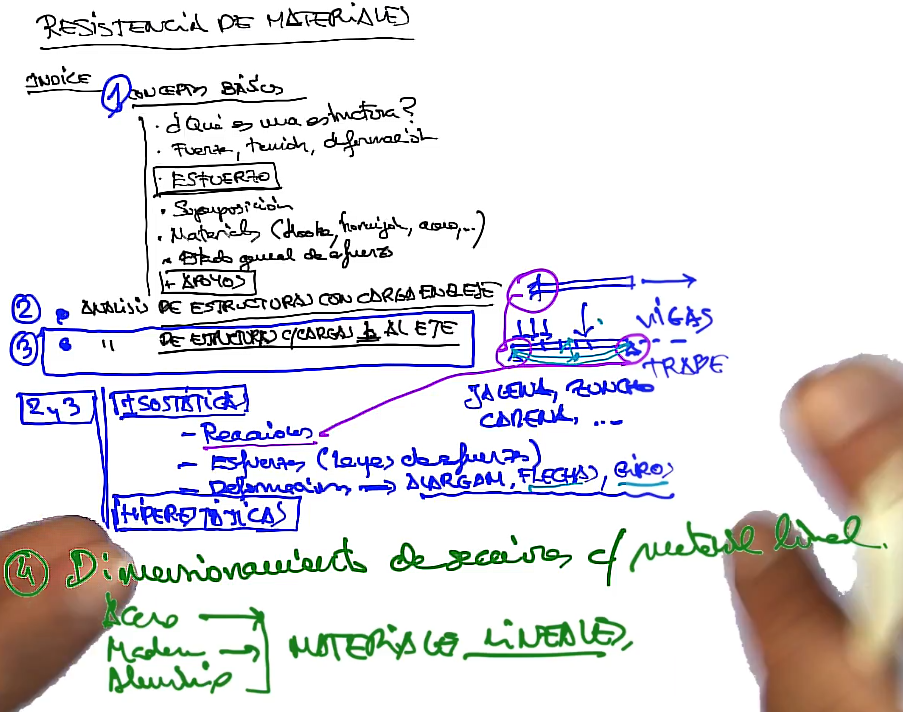 RESISTENCIA DE MATERIALES
INDICE
1 CONCEPTOS BÁSICOS
· ¿Qué es una estructura?
· Fuerza, tensión, deformación
· ESFUERZO
· Superposición
· Materiales (Hooke, hormigón, acero,...)
- Estado general de esfuerzo
+ APOYOS
2 ANALISIS DE ESTRUCTURAS CON CARGA EN EL EJE
3 " DE ESTRUCTURAS C/CARGAS ⊥ AL EJE
VIGAS
TRABE
JACENA, ZUNCHO
CADENA, ...
2 y 3
ISOSTÁTICAS
- Reacciones
- Esfuerzos (Leyes de esfuerzo)
- Deformaciones → ALARGAM, FLECHAS, GIROS
HIPERESTÁTICAS
4 Dimensionamiento de secciones c/ material lineal.
Acero
Madera → MATERIALES LINEALES,
Aluminio